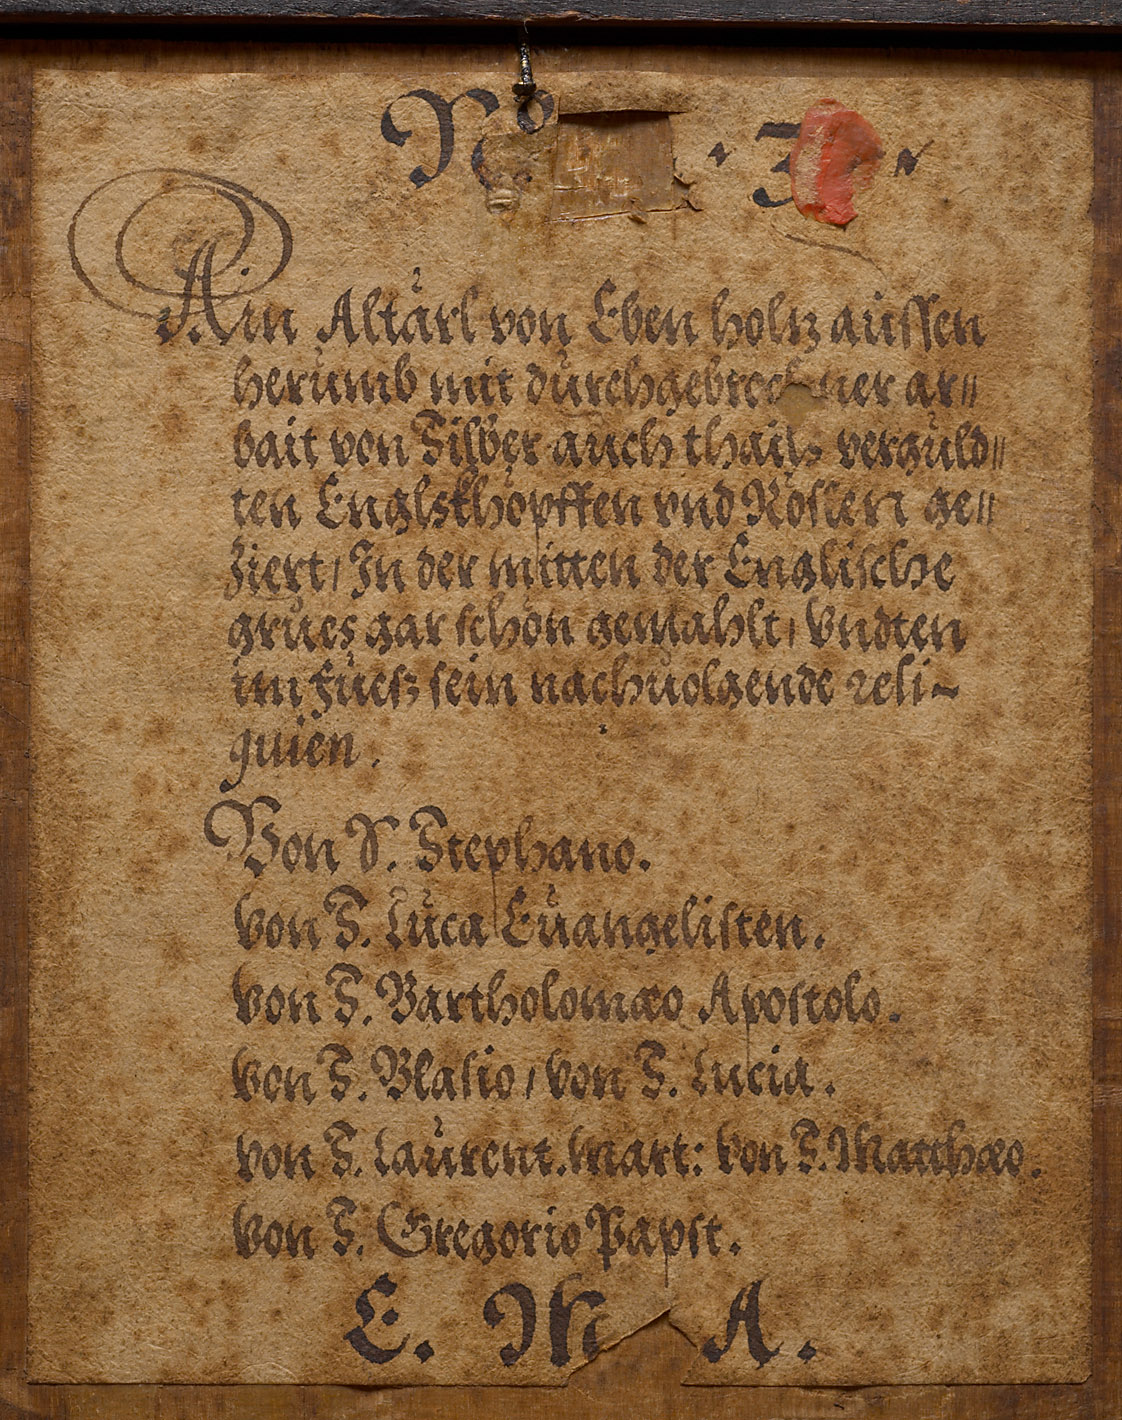 No · 3 ·
Ain Altärl von Eben holtz aŭssen
herŭmb mit dŭrchgebrochner ar⸗
bait von Silber aŭch thails vergŭld⸗
ten Englskhöpffen vnd Röslen ge⸗
ziert / In der mitten der Englische
grŭes gar schön gemahlt / Vndten
im Fŭesz sein nachŭolgende reli⸗
quien.
Von S. Stephano.
von S. Lŭca Eŭangelisten.
von S. Bartholomæo Apostolo.
von S. Blasio / von S. Lucia.
von S. Laŭrent. Mart: von S. Matthæo.
von S. Gregorio Papst.
E. M A.